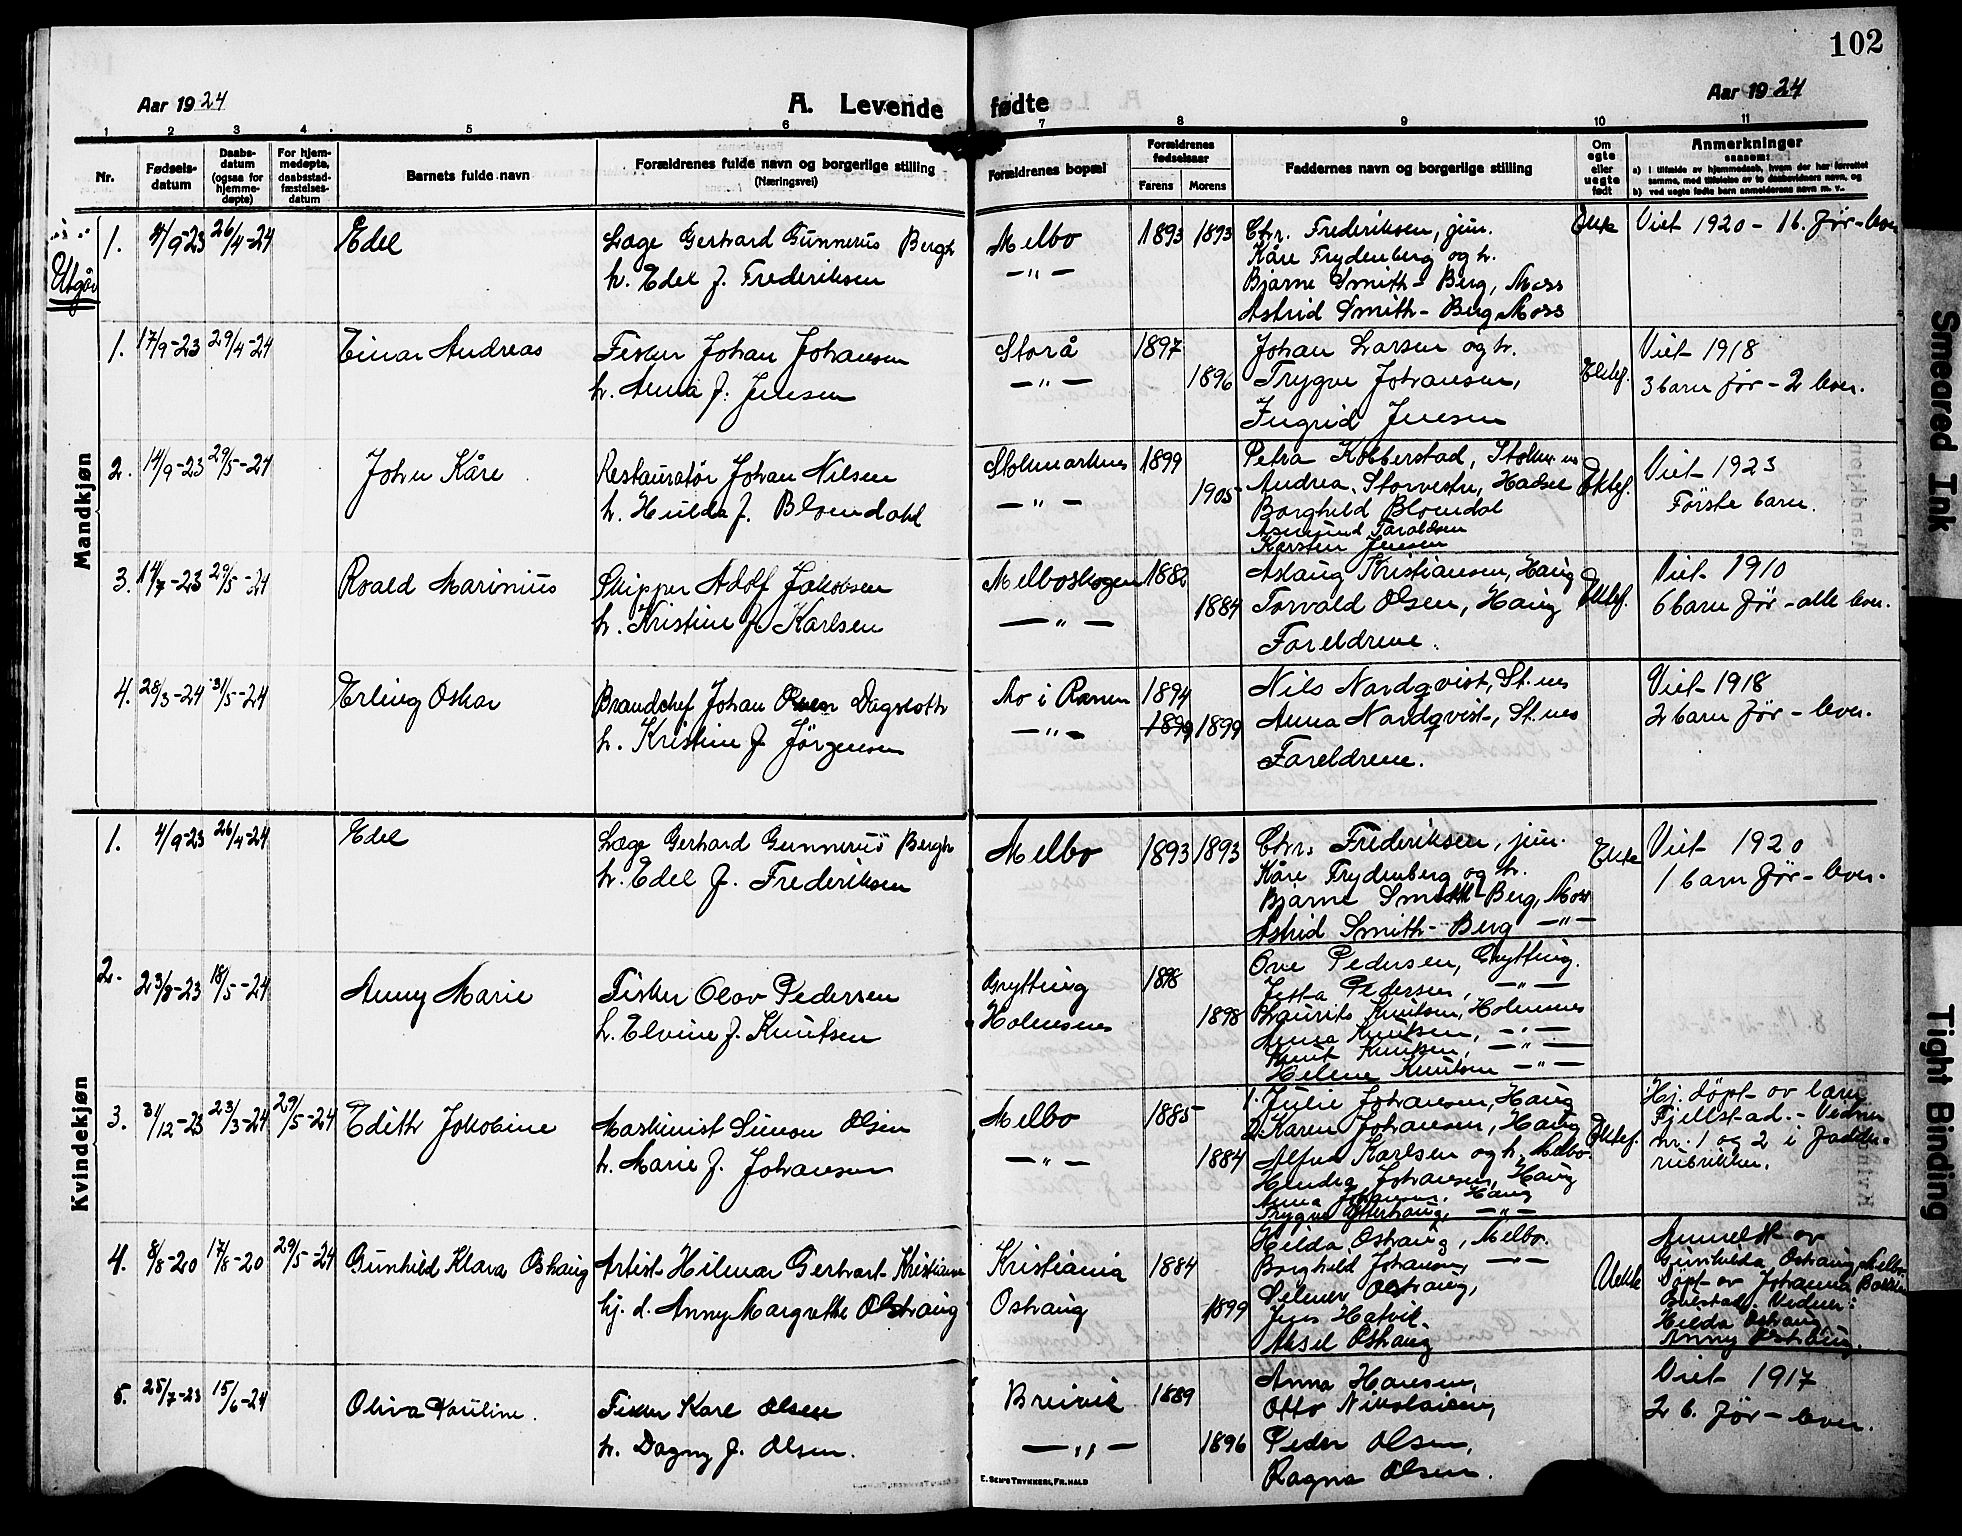 102
Aar 1924
A. Levende fødte
Aar 1924
1 2 3 4 5 6 7 8 9 10 11
Nr.
Fødsels-datum
Daabs-datum (ogsaa for hjemme-døpte)
For hjem-medøpte, daabsstad-fæstelses-datum
Barnets fulde navn
Forældrenes fulde navn og borgerlige stilling
(Næringsvei)
Forældrenes bopæl
Forældrenes fødselsaar
Farens Morens
Faddernes navn og borgerlige stilling
Om egte eller uegte født
Anmerkninger
saasom:
a) i tilfælde av hjemmedaab, hvem der har forrettet samme, med tilføielse av to daabsvidners navn, og
b) ved uegte fødte barn anmelderens navn m. v.
Mandkjøn
Utgår
1. 4/9-23 26/4-24 Edel
Læge Gerhard Gunnerus Bergh
h. Edel f. Frederiksen
Melbo
—"—
1893 1893
Chr. Frederiksen, jun.
Kåre Frydenberg og h.
Bjarne Smith-Berg, Moss
Astrid Smith-Berg Moss
Ekte
Viet 1920 - 1 b. før - lever
1. 17/9-23 29/4-24 Einar Andreas
Fisker Johan Johansen
h. Anna f. Jensen
Storå
—"—
1897
1896
Johan Larsen og h.
Trygve Johansen,
Ingrid Jensen
Ektef.
Viet 1918
3 barn før - 2 lever.
2. 14/9-23 29/5-24 John Kåre
Restauratør Johan Nilsen
h. Hulda f. Bloendahl
Stokmarknes
—"—
1899
1905
Petra Kobberstad, Stokm.nes
Andrea Storvestre, Hadsel
Borghild Bloendal
Asmund Taraldsen
Karsten Jensen
Ektef.
Viet 1923
Første barn.
3. 14/7-23 29/5-24 Roald Marinius
Skipper Adolf Jakobsen
h. Kristine f. Karlsen
Melboskogen
—"—
1882
1884
Aslaug Kristiansen, Haug
Torvald Olsen, Haug
Foreldrene.
Ektef.
Viet 1910
6 barn før - alle lever.
4. 28/3-24 31/5-24 Erling Oskar
Brandchef Johan Olsen Dagsloth
h. Kristine f. Jörgensen
Mo i Ranen
—"—
1894
1899 1899
Nils Nordqvist, St.nes
Anna Nordqvist, St.nes
Foreldrene.
Viet 1918
2 barn før - lever.
Kvindekjøn
1. 4/9-23 26/4-24 Edel
Læge Gerhard Gunnerus Bergh
h. Edel f. Frederiksen
Melbo
1893 1893
Chr. Frederiksen, jun.
Kåre Frydenberg og h.
Bjarne Smith-Berg, Moss
Astrid Smith-Berg —"—
Ekte
Viet 1920
1 barn før - lever.
2. 23/8-23 18/5-24 Anny Marie
Fisker Olav Pedersen
h. Elvine f. Knutsen
Grytting
Holmsnes
1898
1898
Ove Pedersen, Grytting.
Jetta Pedersen, —"—
Laurits Knutsen, Holmsnes
Anna Knutsen, —"—
Knut Knutsen, —"—
Helene Knutsen —"—
3. 31/12-23 23/3-24 29/5-24 Edith Jakobine
Maskinist Simon Olsen
h. Marie f. Johansen
Melbo
—"—
1885
1884
1. Julie Johansen, Haug
2. Karen Johansen, Haug
Alfred Karlsen og h. Melbo.
Hendra Johansen, Haug
Anna Johansen, Haug
Trygve Ytterhaug, —"—
Ektef.
Hj. døpt av lærer
Fjellstad. - Vidner
nr. 1 og 2 i fadder-
rubrikken.
4. 8/8-20 17/8-20 29/5-24 Gunhild Klara Oshaug
Artist Hilmar Gerhart Kristiansen
hj. d. Anny Margrethe Oshaug
Kristiania
Oshaug
1884
1899
Hilda Oshaug, Melbo.
Borghild Johansen, —"—
Selmer Oshaug,
Jens Hatvik.
Aksel Oshaug
Uekte
Anmeldt av
Gunhilda Oshaug, Melbo
Døpt av Johanna
Vidner:
Hilda Oshaug
Anny Oshaug.
5. 25/7-23 15/6-24 Oliva Pauline.
Fisker Kare Olsen
h. Dagny f. Olsen.
Breivik
—"—
1889
1896
Anna Hansen,
Otto Nikolaisen,
Peder Olsen,
Ragna Olsen.
Viet 1917
2 b. før - lever.
E. Sem's Trykkeri, Fr.hald
Smeared Ink
Tight Binding